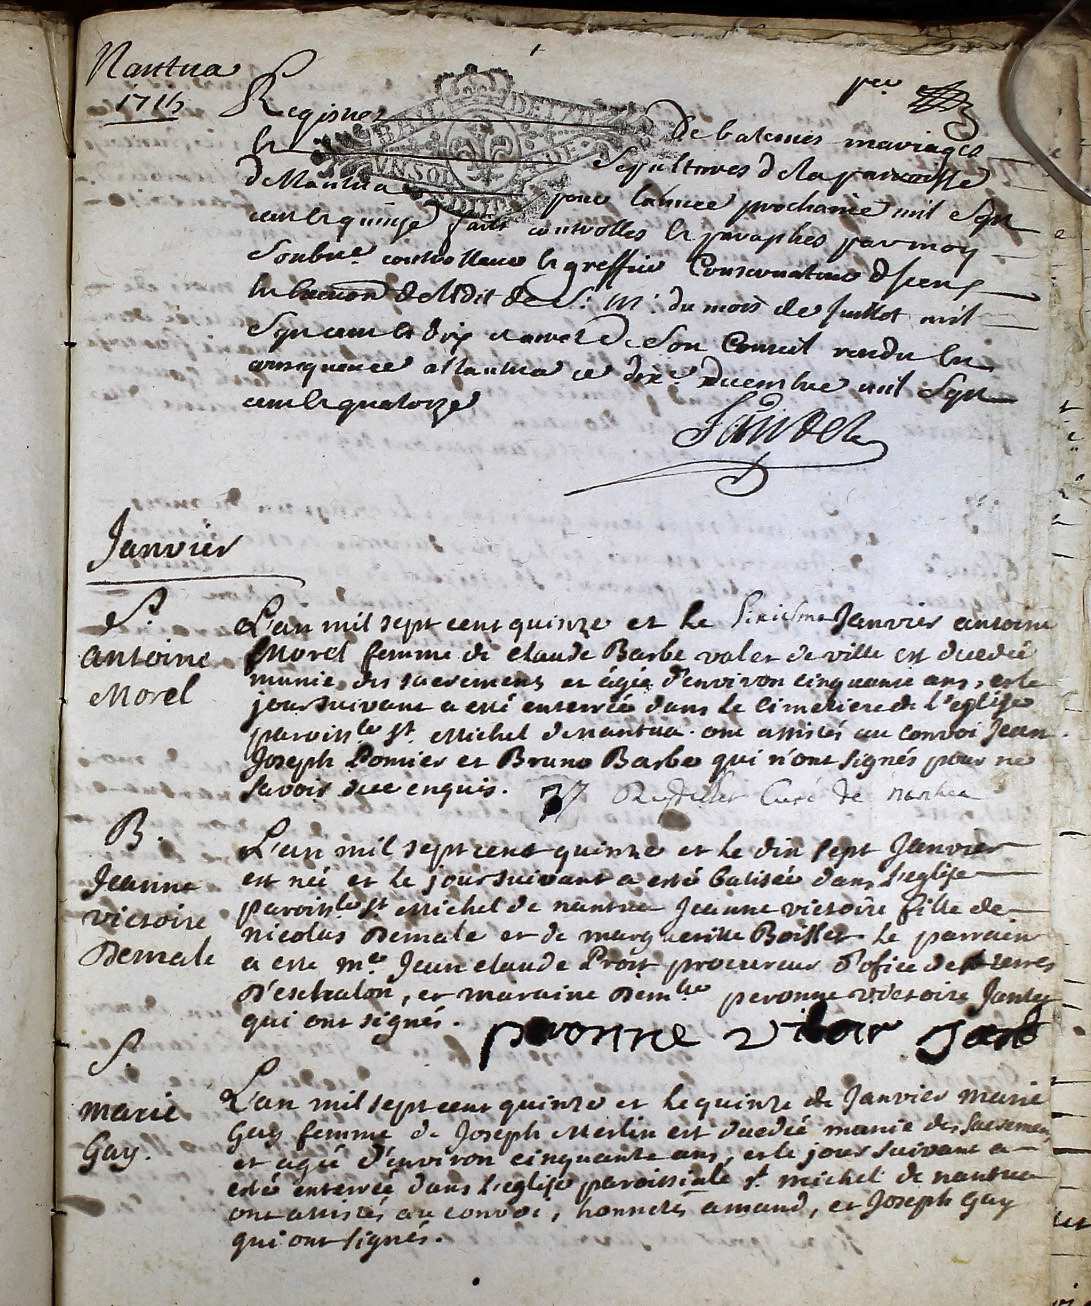 Nantua
1715
Registre
BRAIL. DE LYON
VN. SOL
DIT
de batemes mariages
et Sepultures de la parroisse
de Nantua pour l'année prochaine mil Sept
cent et quinze fait controllés et paraphés par moy
Soubne. controlleur et greffier Conservateur
de l'Edit de S. M. du mois de Juillet mil
Sept cent et dix et arrest de Son Conseil rendu en
consequence a Nantua ce dixe. decembre mil Sept
cent et quatorze
Janvier
S.
antoine
Morel
L'an mil sept cent quinze et le sixieme Janvier antoine
Morel femme de claude Barbe valet de ville est decedée
munie des sacremens et agée d'environ cinquante ans, et le
jour suivant a esté enterrée dans le cimetiere de l'eglise
paroisle. st. Michel de Nantua. ont assistés au convoi Jean
Joseph Pomier et Bruno Barbe qui n'ont signés pour ne
savoir de ce enquis. Curé de Nantua
B.
Jeanne
victoire
Demale
L'an mil sept cent quinze et le dix sept Janvier
est née et le jour suivant a esté batisée dans l'eglise
paroisle. st. Michel de nantua Jeanne victoire fille de
nicolas Demale et de margueritte Boillet le parrain
a esté me. Jean claude Prost procureur d'ofice des terres
D'eschalon, et maraine Demlle. peronne victoire Jantet
qui ont signés.
S.
marie
Gay.
L'an mil sept cent quinze et le quinze de Janvier marie
Gay femme de Joseph Merlin est decedée munie des Sacremens
et agée d'environ cinquante ans, et le jour suivant a
esté enterrée dans l'eglise paroissiale st. michel de nantua
ont assistés au convoi, honnetes amand, et Joseph Gay
qui ont signés.